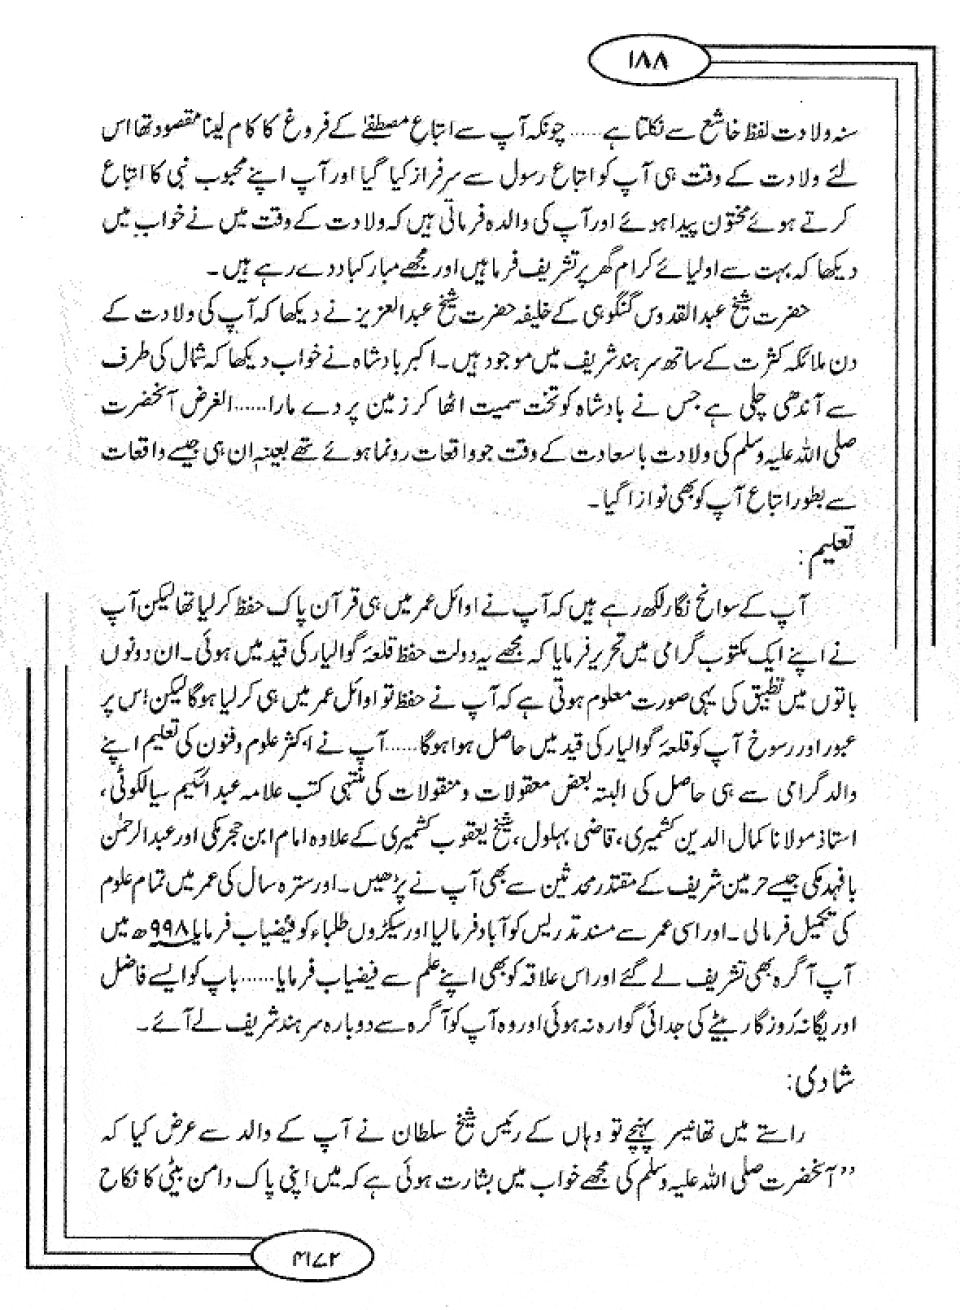 ۱۸۸
سنہ ولادت لفظ خاشع سے نکلتا ہے...... چونکہ آپ سے اتباع مصطفیٰ کے فروغ کا کام لینا مقصود تھا اس
لئے ولادت کے وقت ہی آپ کو اتباع رسول سے سرفراز کیا گیا اور آپ اپنے محبوب نبی کا اتباع
کرتے ہوئے مختون پیدا ہوئے اور آپ کی والدہ فرماتی ہیں کہ ولادت کے وقت میں نے خواب میں
دیکھا کہ بہت سے اولیائے کرام گھر پر تشریف فرما ہیں اور مجھے مبارکباد دے رہے ہیں۔
حضرت شیخ عبدالقدوس گنگوہی کے خلیفہ حضرت شیخ عبدالعزیز نے دیکھا کہ آپ کی ولادت کے
دن ملائکہ کثرت کے ساتھ سرہند شریف میں موجود ہیں۔ اکبر بادشاہ نے خواب دیکھا کہ شمال کی طرف
سے آندھی چلی ہے جس نے بادشاہ کو تخت سمیت اٹھا کر زمین پر دے مارا...... الغرض آنحضرت
صلی اللہ علیہ وسلم کی ولادت با سعادت کے وقت جو واقعات رونما ہوئے تھے بعینہٖ ان ہی جیسے واقعات
سے بطور اتباع آپ کو بھی نوازا گیا۔
تعلیم:
آپ کے سوانح نگار لکھ رہے ہیں کہ آپ نے اوائل عمر میں ہی قرآن پاک حفظ کر لیا تھا لیکن آپ
نے اپنے ایک مکتوب گرامی میں تحریر فرمایا کہ مجھے یہ دولت حفظ قلعۂ گوالیار کی قید میں ہوئی۔ ان دونوں
باتوں میں تطبیق کی یہی صورت معلوم ہوتی ہے کہ آپ نے حفظ تو اوائل عمر میں ہی کر لیا ہوگا لیکن اس پر
عبور اور رسوخ آپ کو قلعۂ گوالیار کی قید میں حاصل ہوا ہوگا...... آپ نے اکثر علوم و فنون کی تعلیم اپنے
والد گرامی سے ہی حاصل کی البتہ بعض معقولات و منقولات کی منتہی کتب علامہ عبدالحکیم سیالکوٹی،
استاذ مولانا کمال الدین کشمیری، قاضی بہلول، شیخ یعقوب کشمیری کے علاوہ امام ابن حجر مکی اور عبدالرحمٰن
بافہد مکی جیسے حرمین شریف کے مقتدر محدثین سے بھی آپ نے پڑھیں۔ اور سترہ سال کی عمر میں تمام علوم
کی تکمیل فرمالی۔ اور اسی عمر سے مسند تدریس کو آباد فرمالیا اور سیکڑوں طلباء کو فیضیاب فرمایا ۹۹۸ھ میں
آپ آگرہ بھی تشریف لے گئے اور اس علاقہ کو بھی اپنے علم سے فیضیاب فرمایا...... باپ کو ایسے فاضل
اور یگانہ روزگار بیٹے کی جدائی گوارہ نہ ہوئی اور وہ آپ کو آگرہ سے دوبارہ سرہند شریف لے آئے۔
شادی:
راستے میں تھانیسر پہنچے تو وہاں کے رئیس شیخ سلطان نے آپ کے والد سے عرض کیا کہ
”آنحضرت صلی اللہ علیہ وسلم کی مجھے خواب میں بشارت ہوئی ہے کہ میں اپنی پاک دامن بیٹی کا نکاح